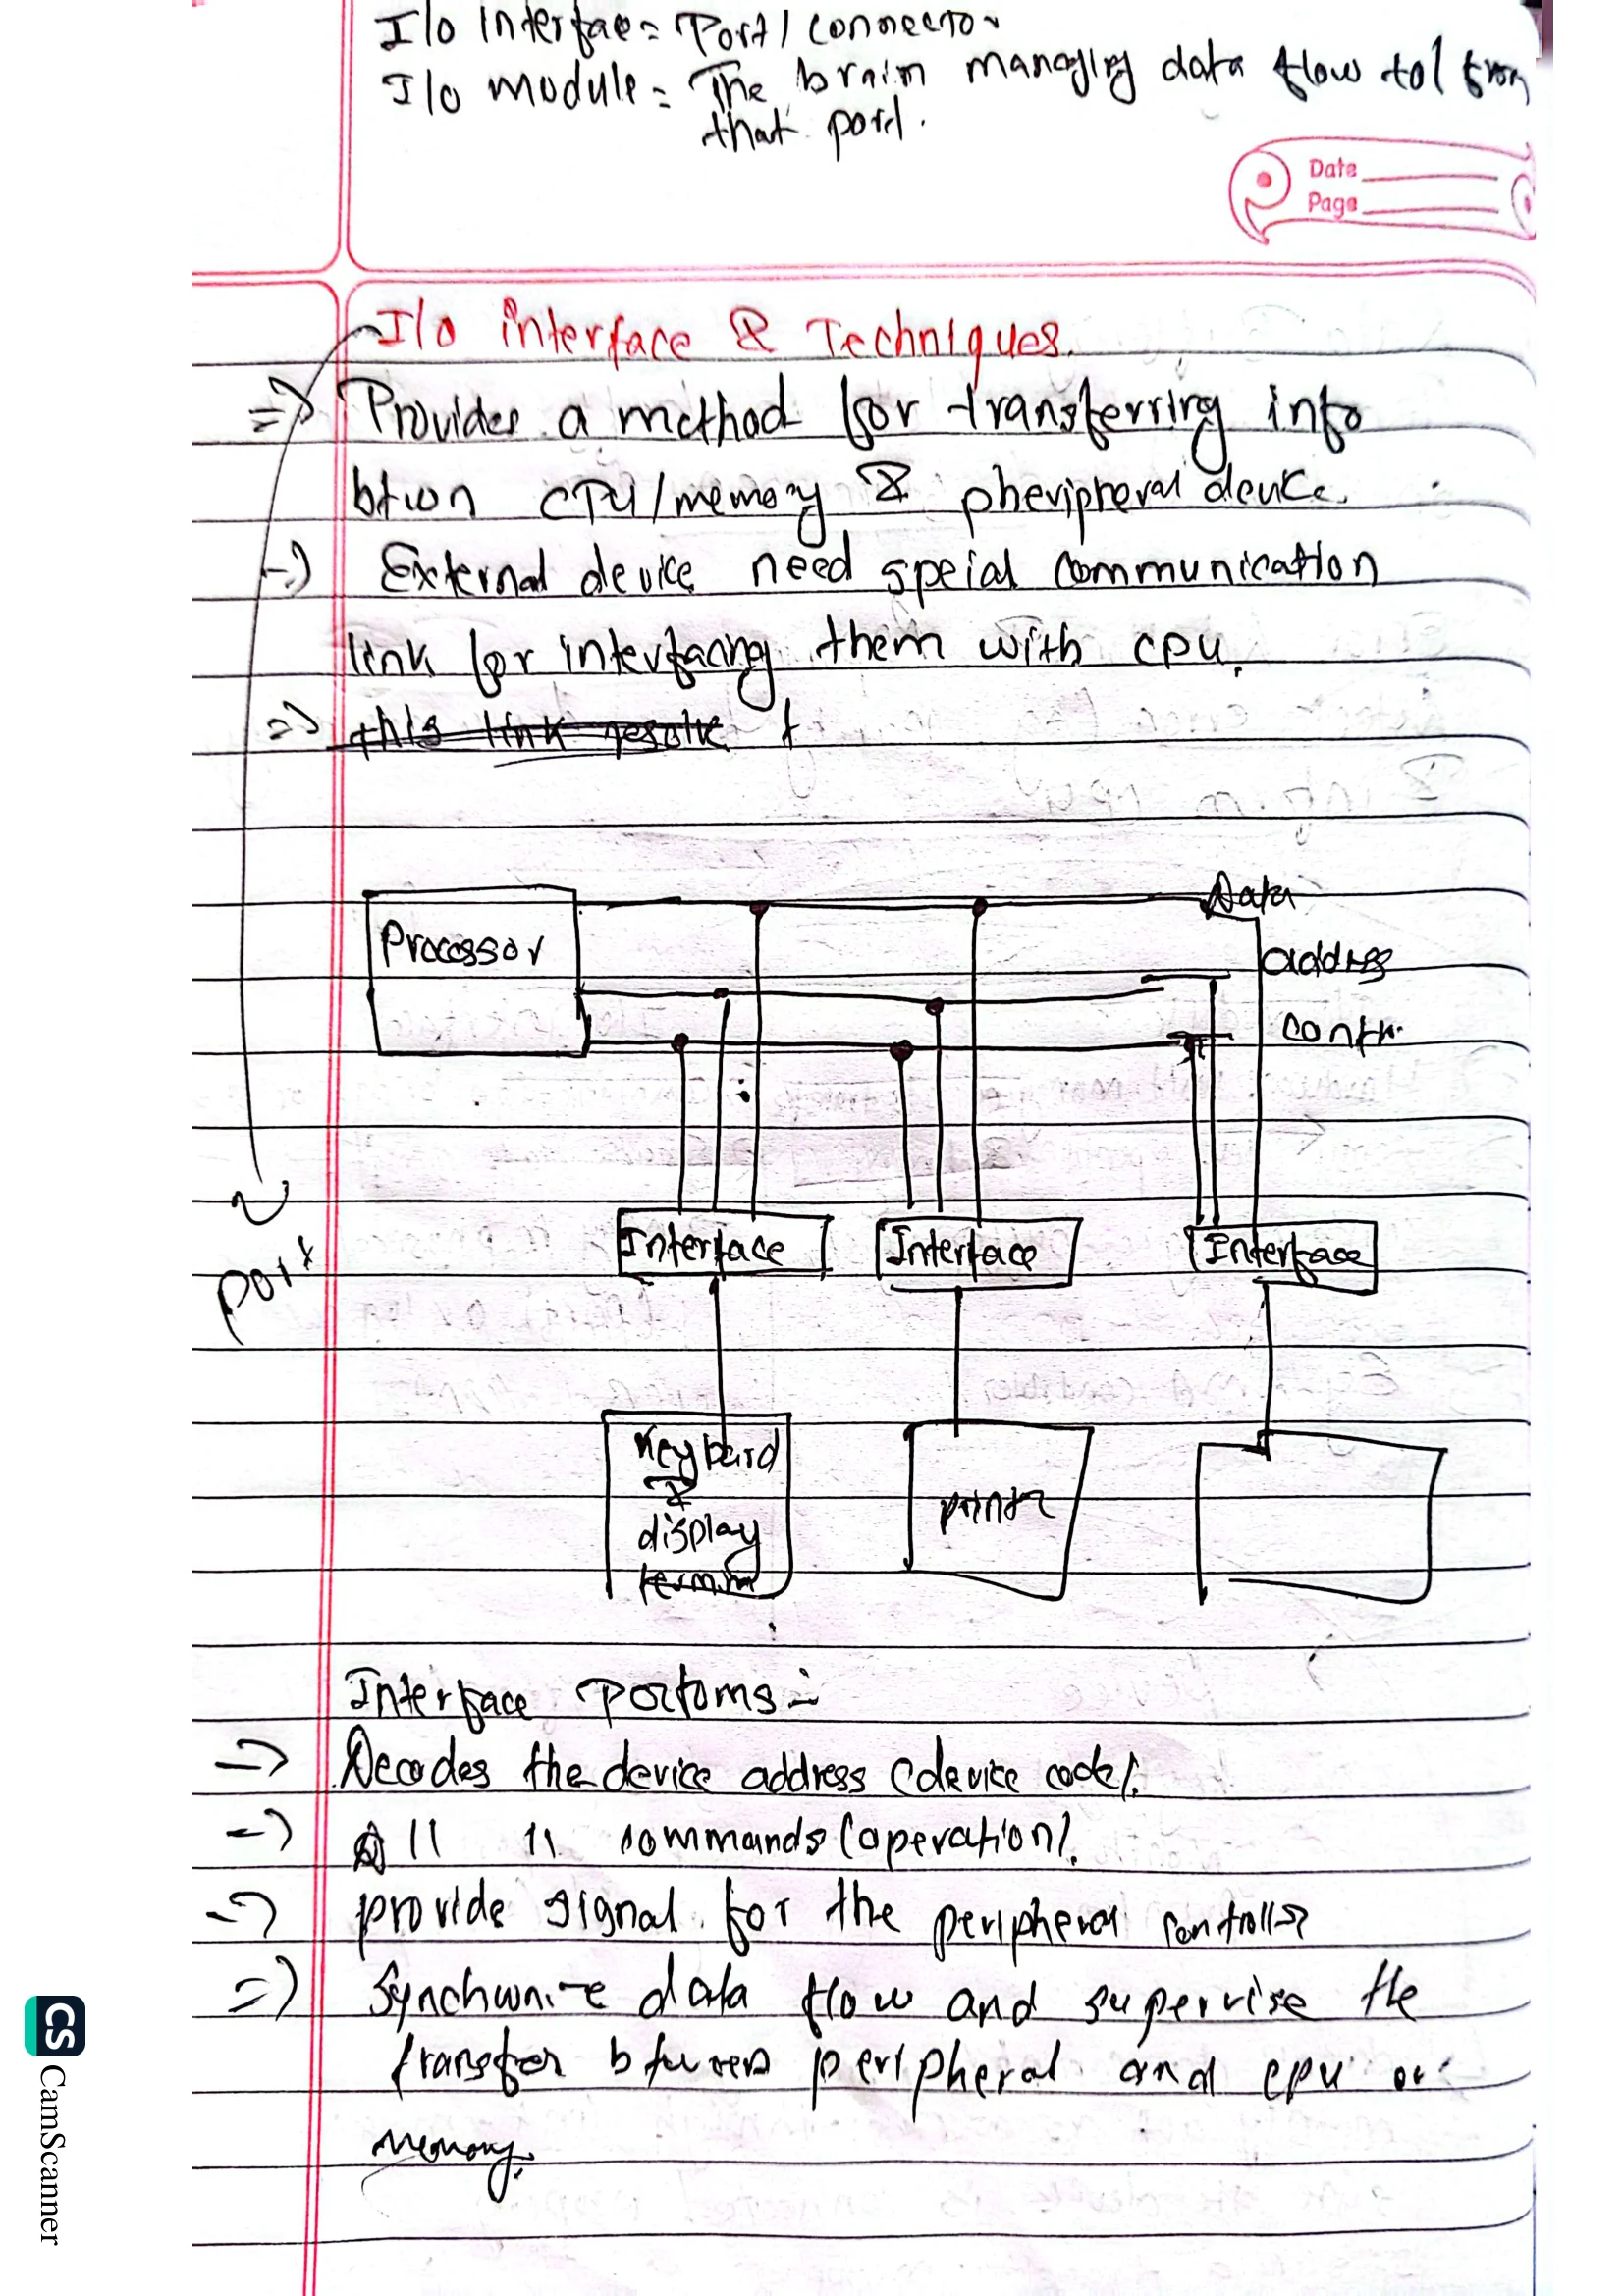 I/o Interfae = Port / connector
I/o module = The brain managing data flow to / from
that port.
Date
Page
I/o interface & Techniques.
=> Provides a method for transferring info
btwn CPU/memory & pheripheral device.
-) External device need speial communication
link for interfacing them with cpu.
=> this link resolve
Data
Processor
address
contr.
Interface Interface Interface
port
Keyboard
&
display
termin
printer
Interface Performs :-
=> Decodes the device address (device code).
-> 11 11 commands (operation).
-> provide signal for the peripheral controller
=> Synchronize data flow and supervise the
transfer between peripheral and cpu or
memory.
CS CamScanner